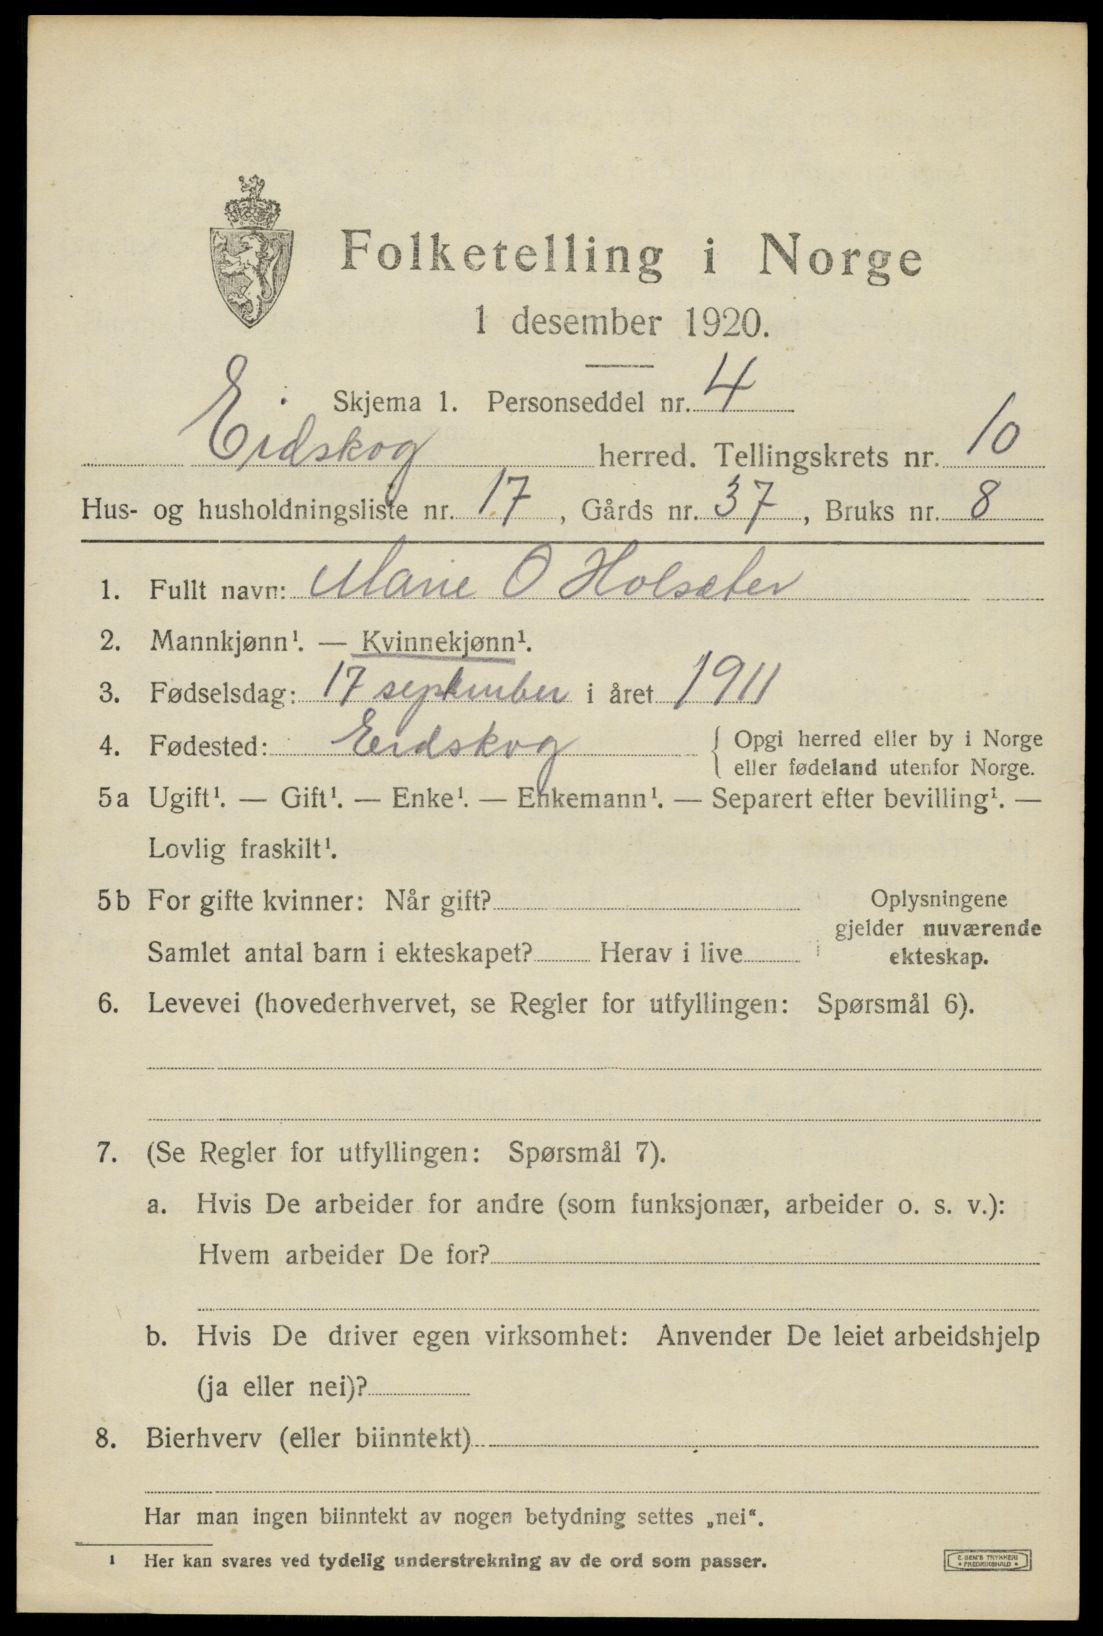 Folketelling i Norge
1 desember 1920.
Skjema 1. Personseddel nr. 4
Eidskog herred. Tellingskrets nr. 10
Hus- og husholdningsliste nr. 17, Gårds nr. 37, Bruks nr. 8
1. Fullt navn: Marie O Holsæter
2. Mannkjønn¹. — Kvinnekjønn¹.
3. Fødselsdag: 17 september i året 1911
4. Fødested: Eidskog { Opgi herred eller by i Norge
eller fødeland utenfor Norge.
5a Ugift¹. — Gift¹. — Enke¹. — Enkemann¹. — Separert efter bevilling¹. —
Lovlig fraskilt¹.
5b For gifte kvinner: Når gift?
Samlet antal barn i ekteskapet? Herav i live
Oplysningene
gjelder nuværende
ekteskap.
6. Levevei (hovederhvervet, se Regler for utfyllingen: Spørsmål 6).
7. (Se Regler for utfyllingen: Spørsmål 7).
a. Hvis De arbeider for andre (som funksjonær, arbeider o. s. v.):
Hvem arbeider De for?
b. Hvis De driver egen virksomhet: Anvender De leiet arbeidshjelp
(ja eller nei)?
8. Bierhverv (eller biinntekt)
Har man ingen biinntekt av nogen betydning settes „nei“.
¹ Her kan svares ved tydelig understrekning av de ord som passer.
E. SEM'S TRYKKERI
• FREDRIKSHALD •